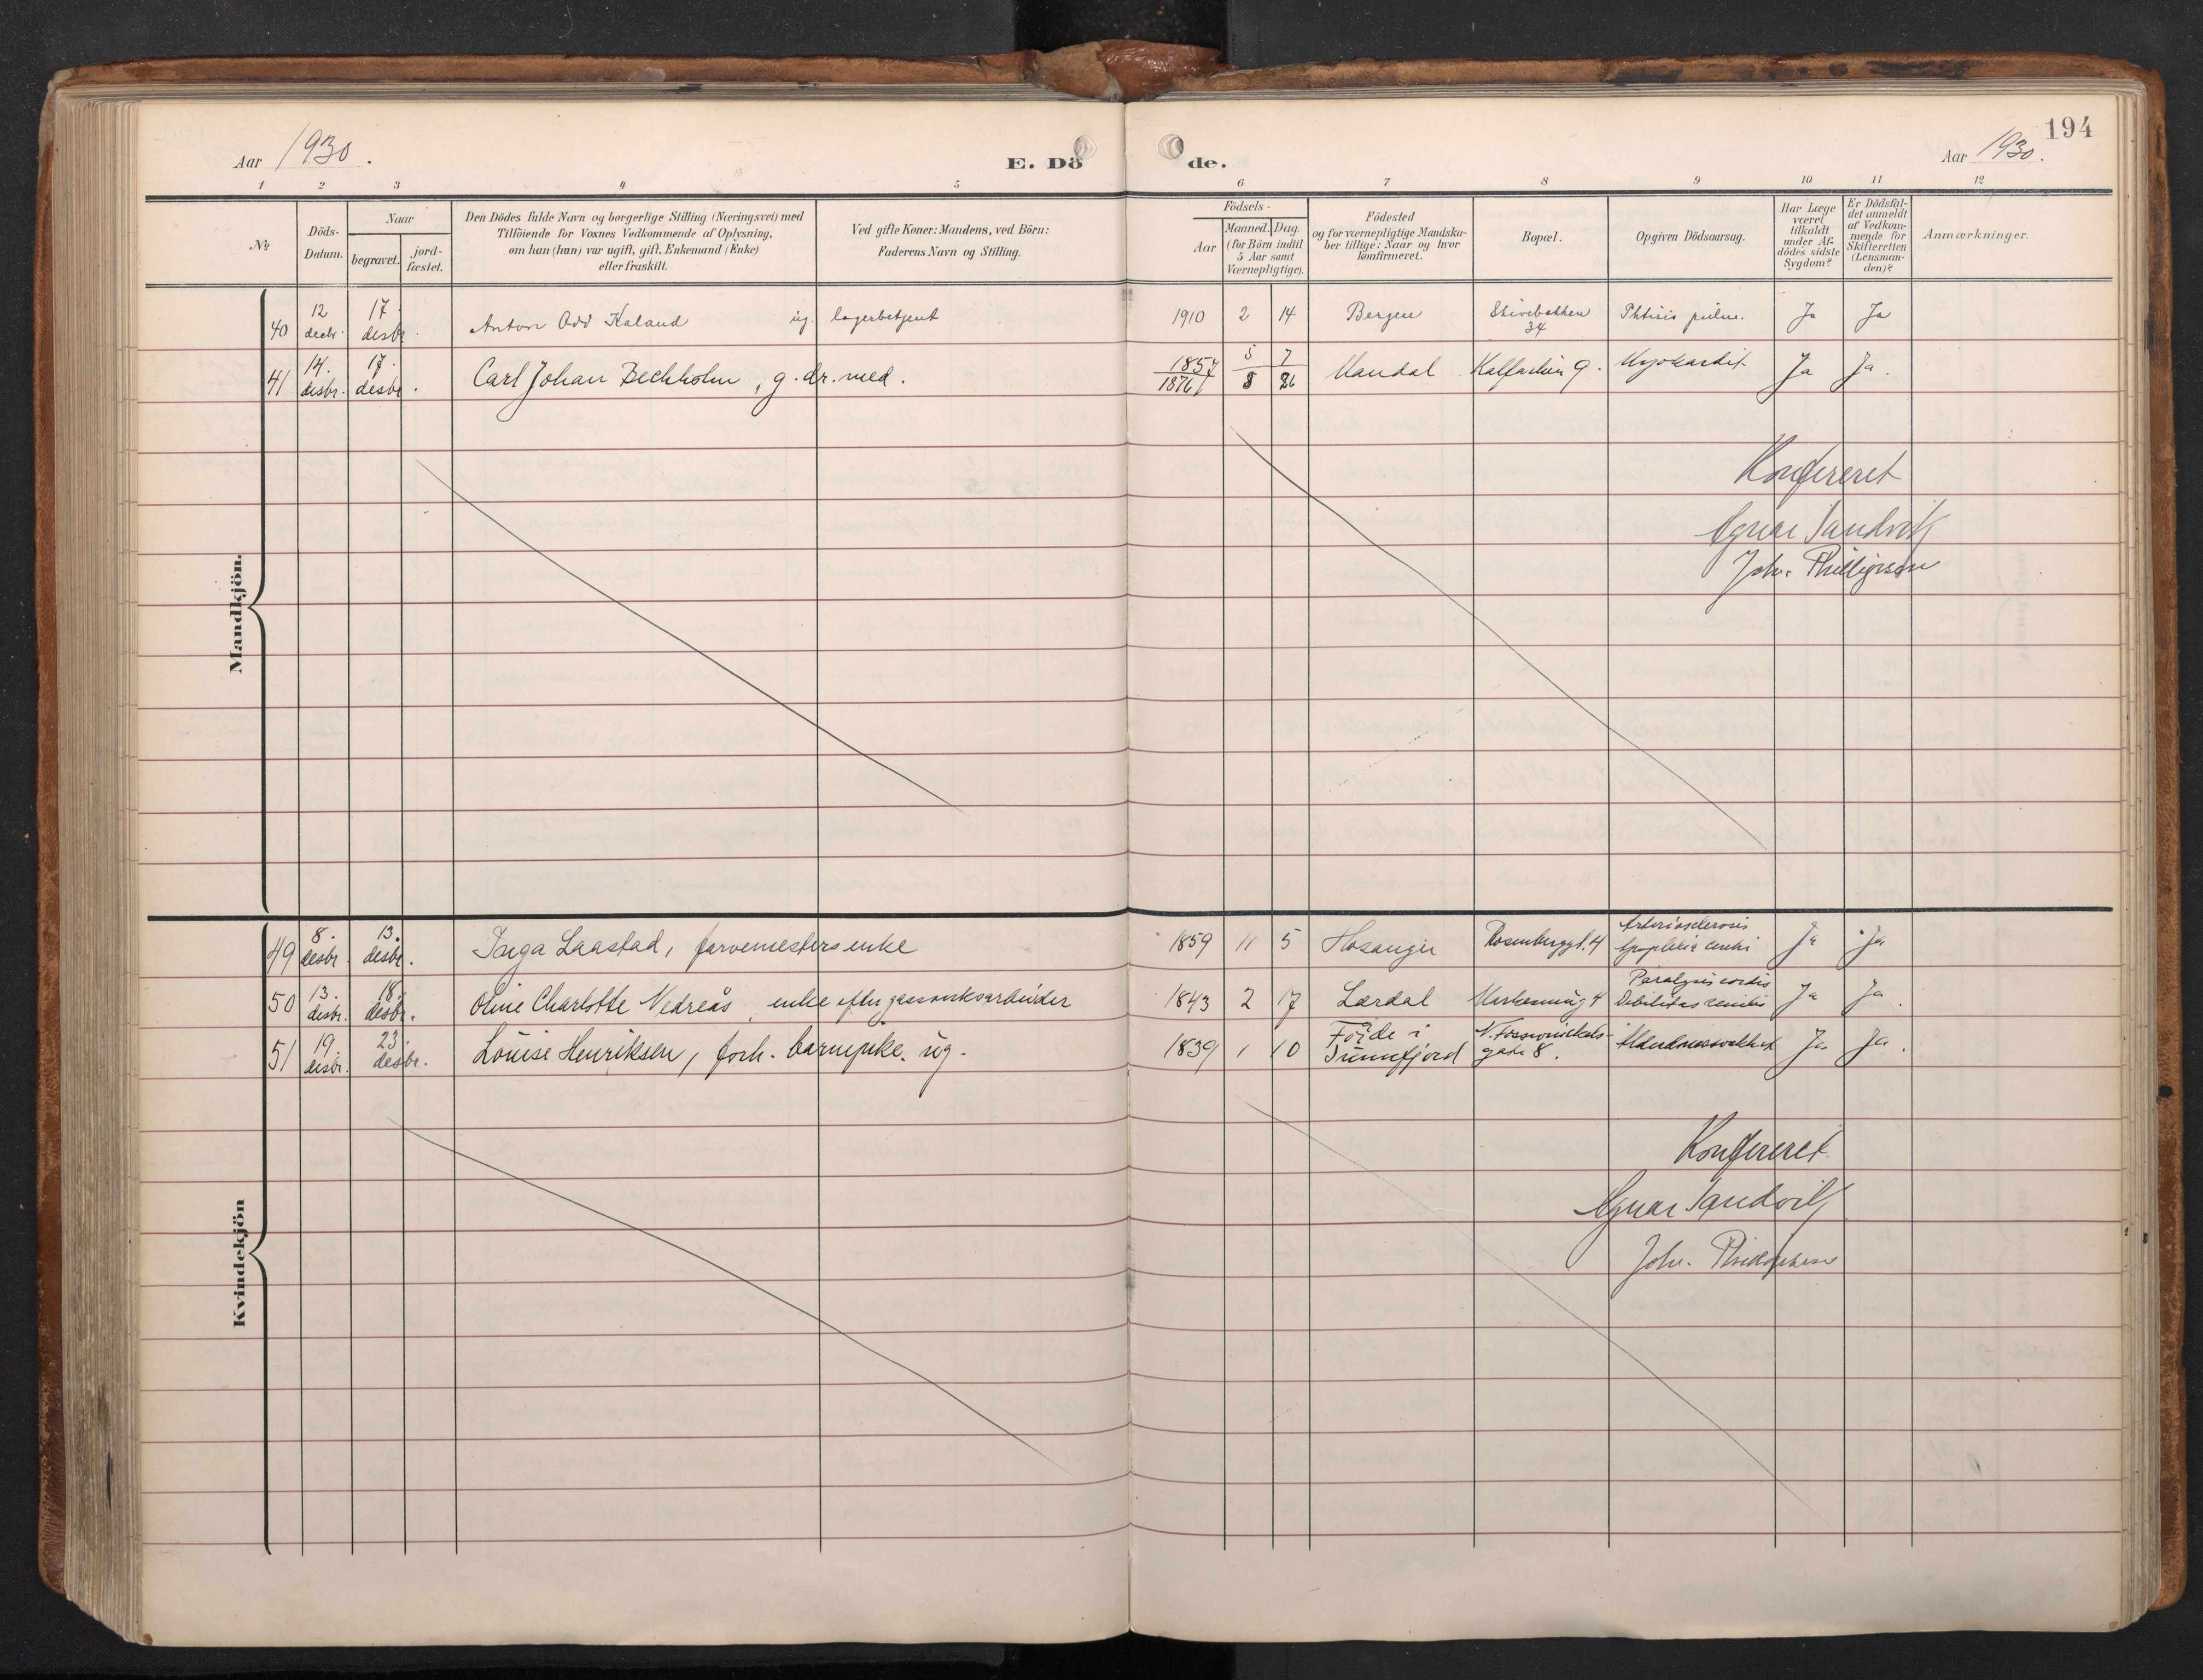 194
Aar 1930. E. Dö de. Aar 1930.
1 2 3 4 5 6 7 8 9 10 11 12
№
Döds-
Datum.
Naar
begravet. jord-
fæstet.
Den Dödes fulde Navn og borgerlige Stilling (Næringsvei) med
Tilföiende for Voxnes Vedkommende af Oplysning,
om han (hun) var ugift, gift, Enkemand (Enke)
eller fraskilt.
Ved gifte Koner: Mandens, ved Börn:
Faderens Navn og Stilling.
Födsels-
Aar
Maaned. Dag.
(for Börn indtil
5 Aar samt
Værnepligtige).
Födested
og for værnepligtige Mandska-
ber tillige: Naar og hvor
konfirmeret.
Bopæl.
Opgiven Dödsaarsag.
Har Læge
været
tilkaldt
under Af-
dödes sidste
Sygdom?
Er Dödsfal-
det anmeldt
af Vedkom-
mende for
Skifteretten
(Lensman-
den)?
Anmærkninger.
Mandkjön.
40 12 decbr. 17. desbr. Anton Odd Kaland ug. lagerbetjent 1910 2 14 Bergen 34 Phtisis pulm. Ja Ja
41 14. desbr. 17. desbr. Carl Johan Bechholm, g. dr. med. 1857 5 7 Mandal Kalfarlien 9. Myokardit Ja Ja.
1876 8 26
Konfereret
Agnar Sandvik
Joh. Phillipsen
Kvindekjön
49 8. desbr. 13. desbr. Inga Laastad, farvemesters enke 1859 11 5 Hosanger Rosenberggt. 4 Arteriosclerosis
Apoplexia cerebri Ja Ja
50 13. desbr. 18. desbr. Oline Charlotte Nedreås, enke efter gassverksarbeider 1843 2 17 Lærdal 4 Paralysis cordis
Debilitas senilis Ja Ja
51 19. desbr. 23. desbr. Louise Henriksen, forh. barnepike. ug. 1839 1 10 Förde i
Sunnfjord
gate 8. Alderdomssvakhet Ja Ja.
Konfereret
Agnar Sandvik
Joh. Phillipsen